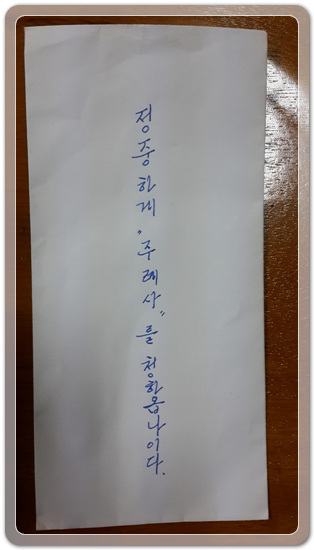 정중하게 "주례사"를 청하옵나이다.